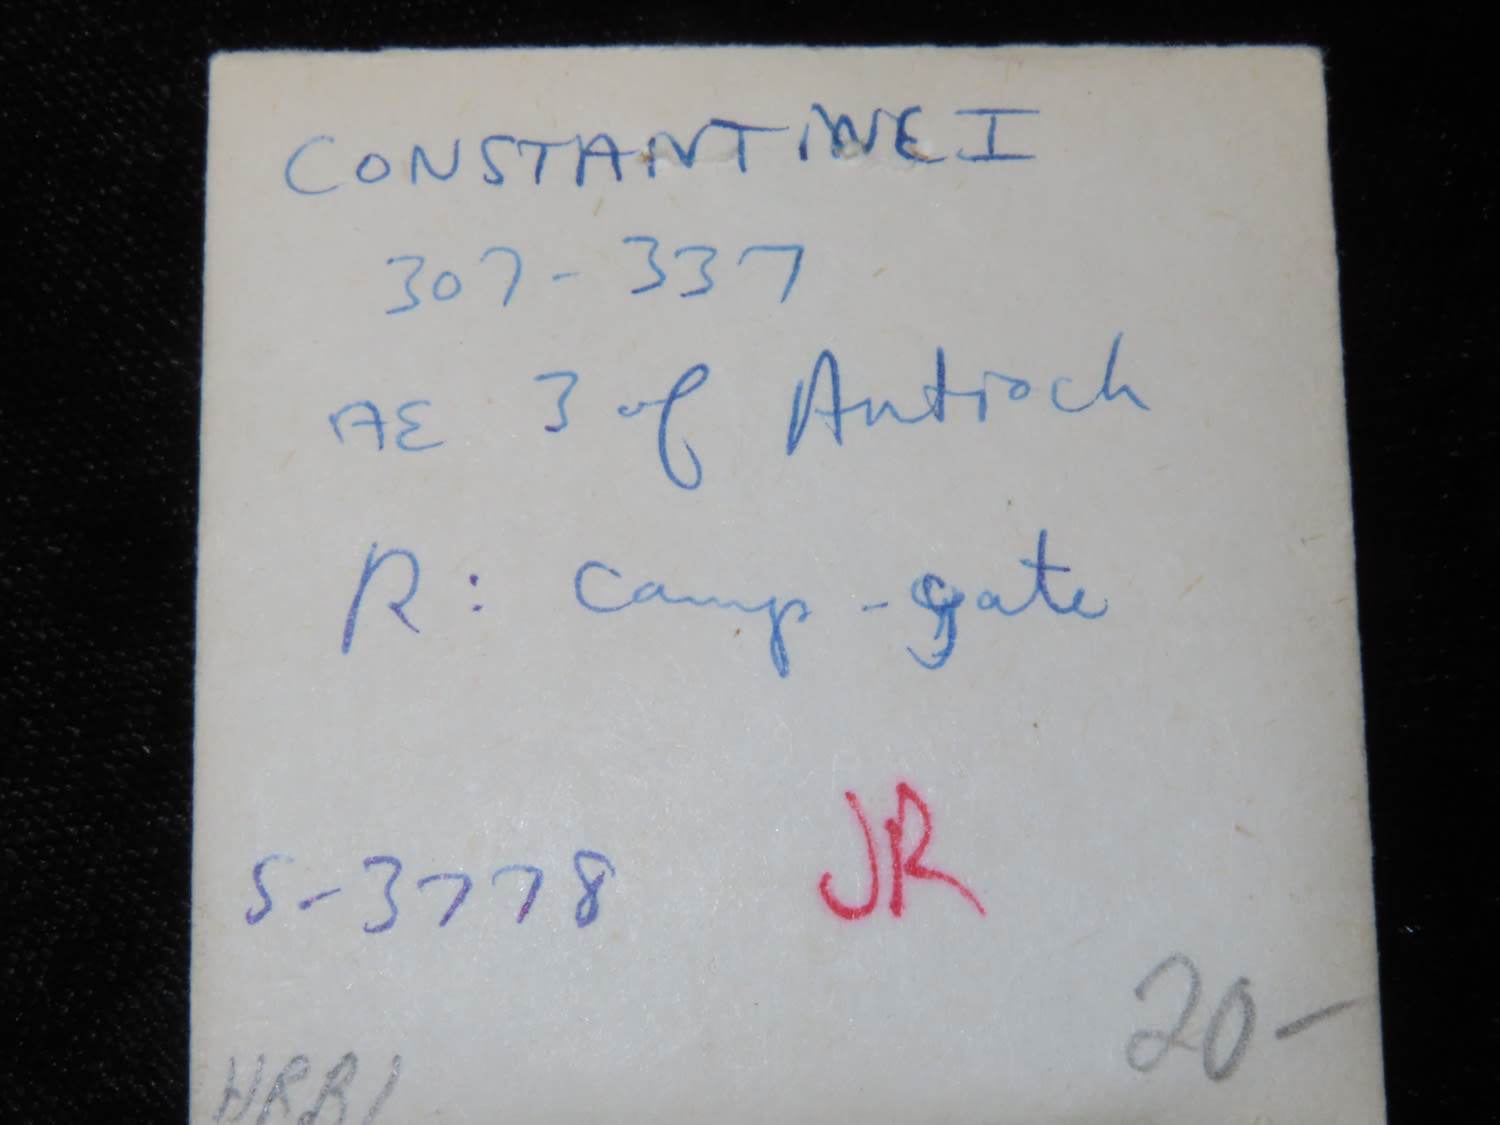 CONSTANTINE I
307-337
AE 3 of Antioch
R: camp-gate
S-3778 JR
20-